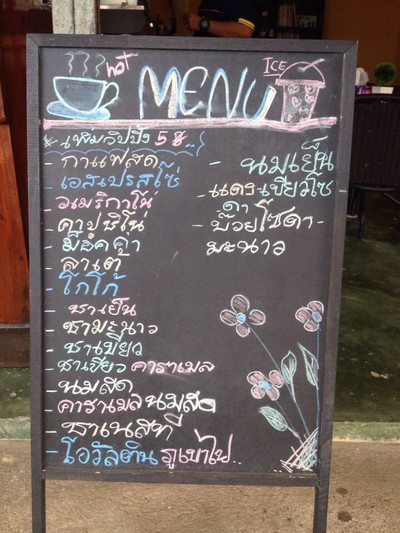 hot
MENU
ICE
* เพิ่มวิปปิ้ง 5 ฿
- กาแฟสด
- เอสเปรสโซ่
- อเมริกาโน่
- คาปูชิโน่
- ม็อคค่า
- ลาเต้
- โกโก้
- ชาเย็น
- ชามะนาว
- ชาเขียว
- ชาเขียวคาราเมล
- นมสด
- คาราเมลนมสด
- ชาเนสที
- โอวัลตินภูเขาไฟ
- นมเย็น
- แดงเขียวโซ
ดา
- บ๊วยโซดา
มะนาว